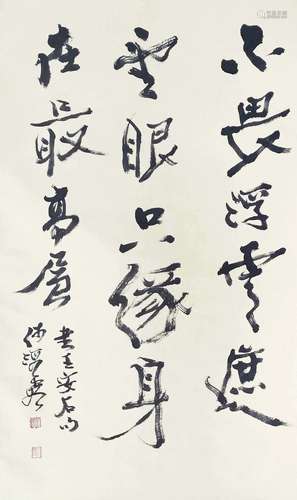 不畏浮雲遮
望眼只缘身
在最高层
书王安石句